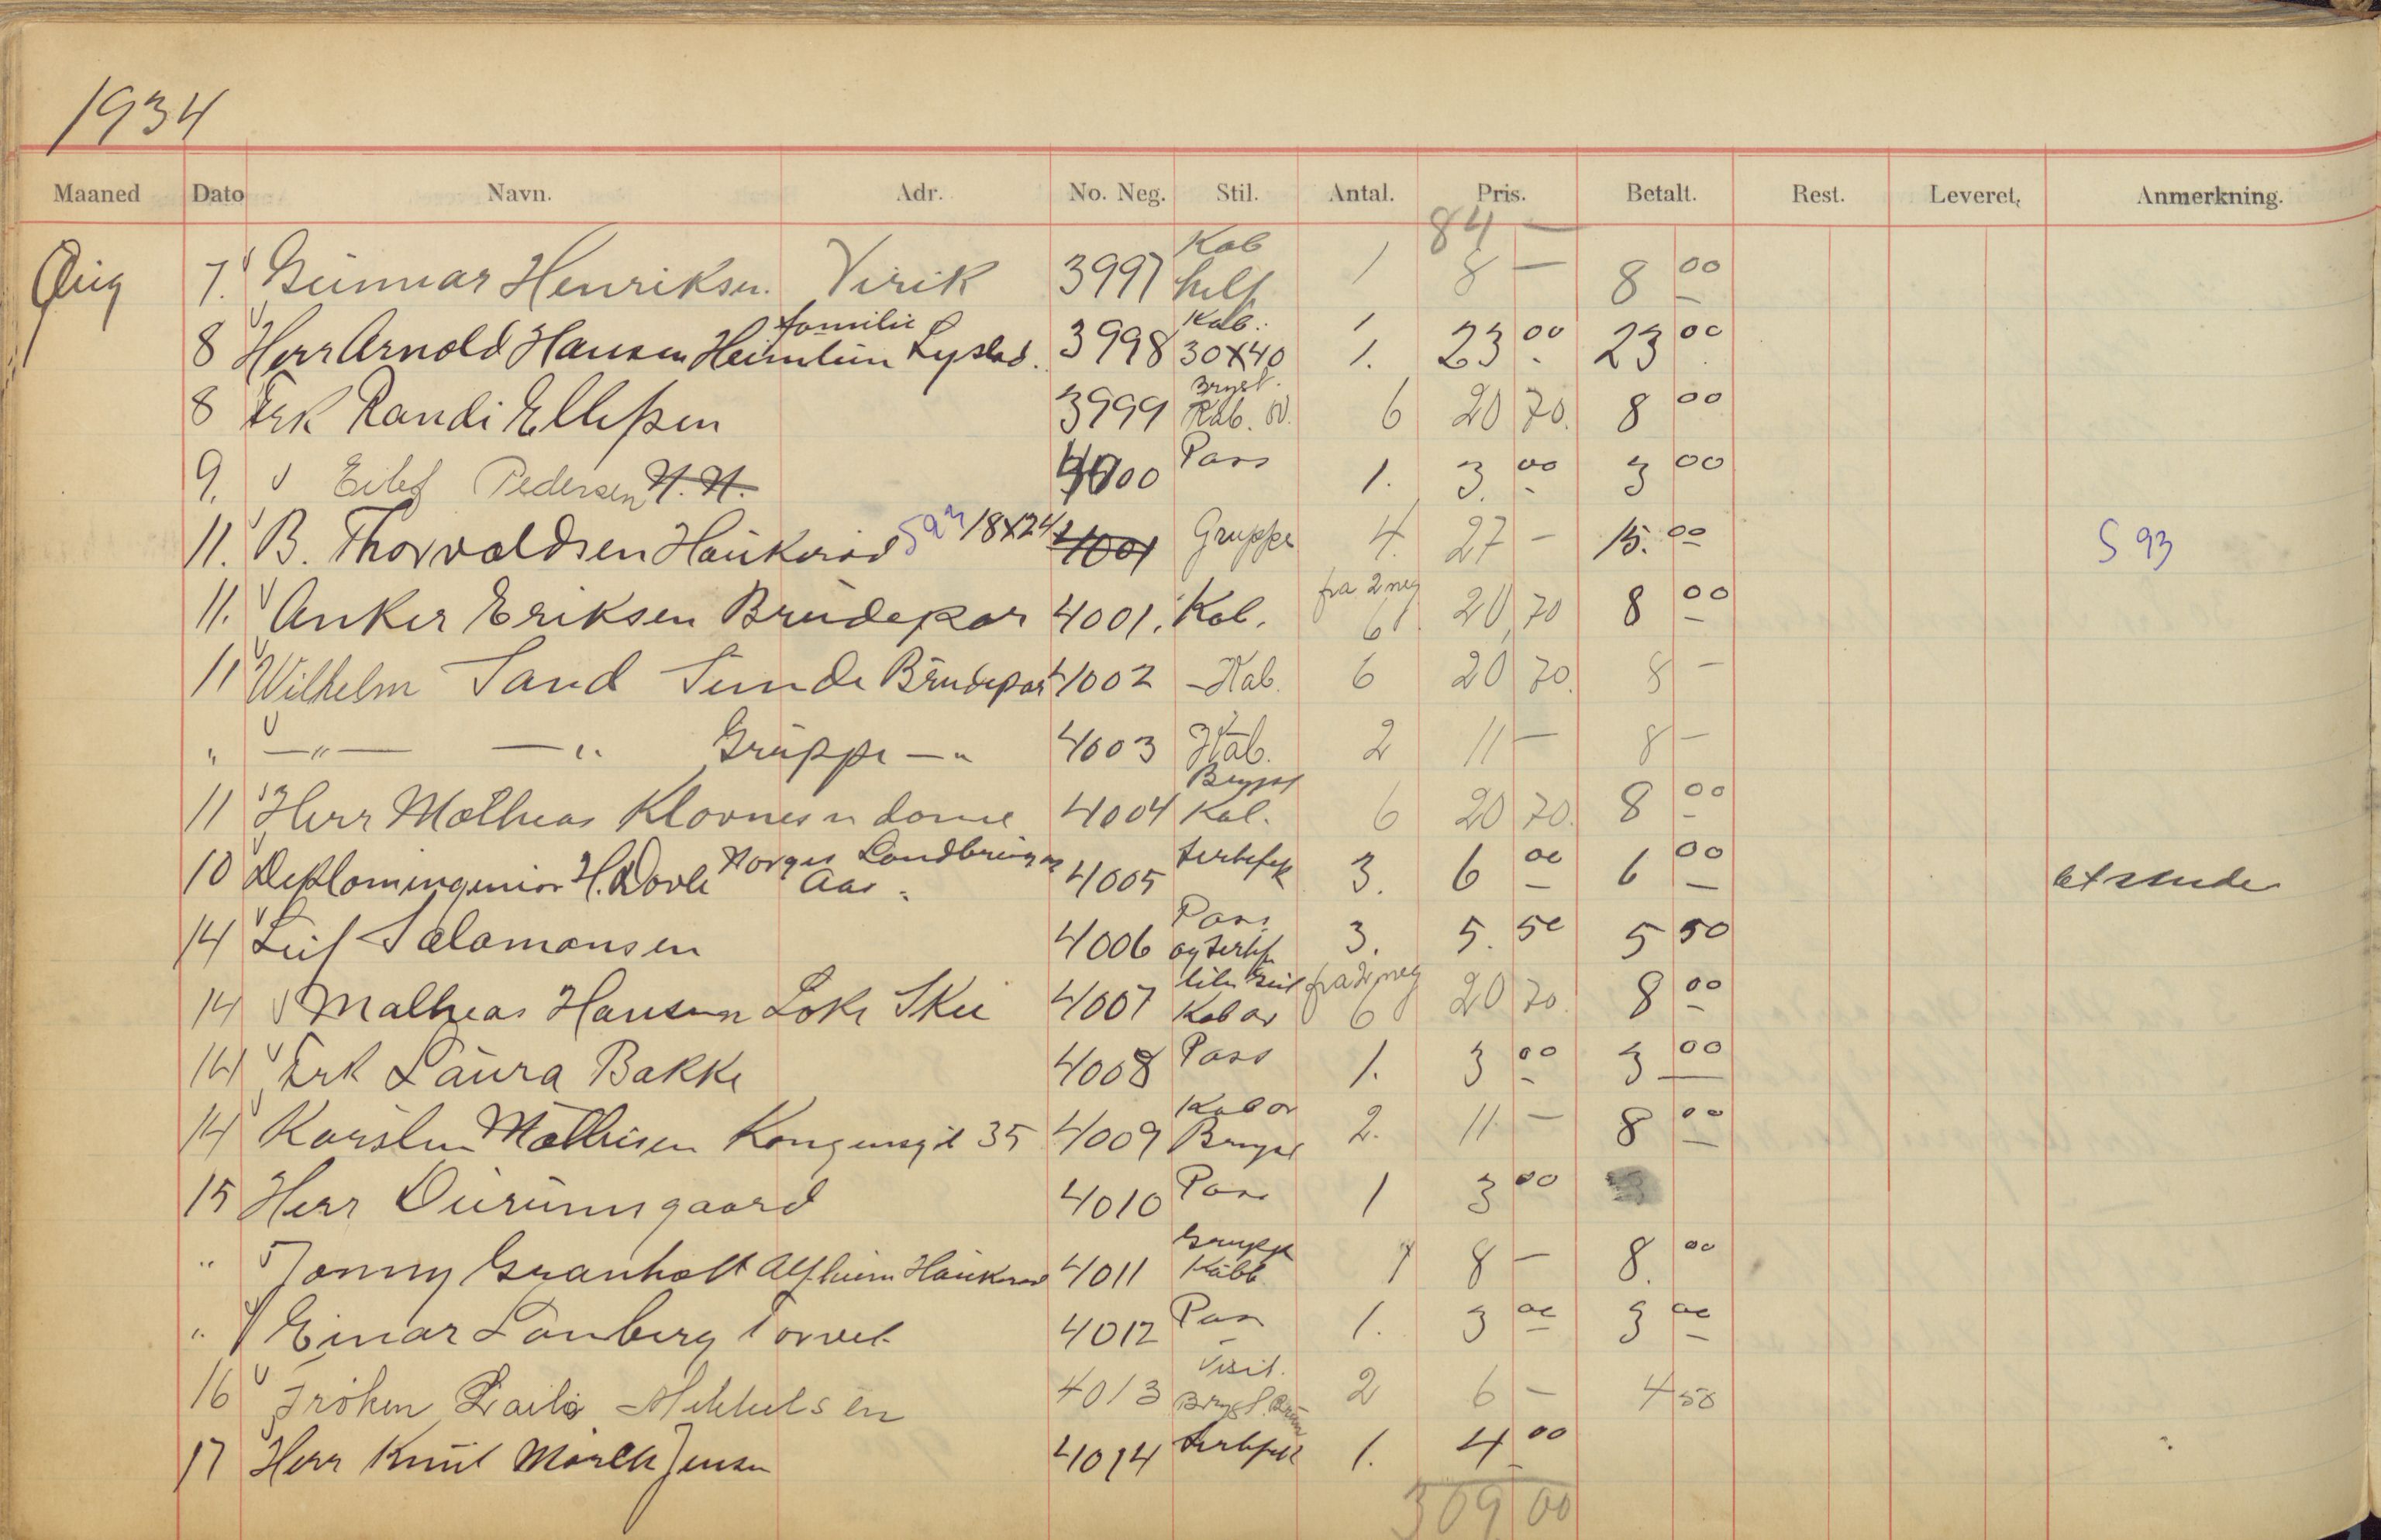 1934
Maaned Dato Navn. Adr. No. Neg. Stil. Antal. Pris. Betalt. Rest. Leveret. Anmerkning.
84 —
Aug 7. Gunnar Henriksen. Virik 3997 Kab helf 1 8 — 8 00
8 Herr Arnold Hansen familie Heimlun Lystad. 3998 Kab. 30x40 1 1. 23 00 23 00
8 Frk Randi Ellefsen 3999 Bryst. Kab. 6 20 70. 8 00
9. Eilef Pedersen N.N. 4000 Pass 1. 3. 00 3 00
11. B. Thorvaldsen Haukerød S 93 18x24 4001 Gruppe 4. 27 — 15. 00 S 93
11. Anker Eriksen Brudepar 4001. Kab. fra 2 neg 6 20 70 8 00
11 Wilhelm Sand Sunde Brudepar 4002 Kab. 6 20 70. 8 —
" — " — — " Gruppe — " 4003 Kab. 2 11 — 8 —
11 Herr Mathias Klovnes n dame 4004 Bryst Kab. 6 20 70. 8 00
10 Diplomingeniør H. Dovle Norges Aas 4005 3. 6 00 6 00
14 Leif Salomonsen 4006 Pass og 3. 5. 50 5 50
14 Mathias Hansen Loke Skee 4007 Kab fra 2 neg 6 20 70. 8 00
14 Frk Laura Bakke 4008 Pass 1. 3 00 3 00
14 Karsten Mathisen Kongensgt 35 4009 Kab Bryst 2. 11 — 8 00
15 Herr 4010 Pass 1 3 00
" Jonny Granholt Alfheim Haukerød 4011 Gruppe Kabb 1 8 — 8. 00
" Einar Lønberg Torvet 4012 Pass 1. 3 00 3 00
16 Frøken Laila Mikkelsen 4013 Visit. Bryst. Brun 2 6 — 4 50
17 Herr Knut Mørch Jensen 4014 1. 4 00
309 00